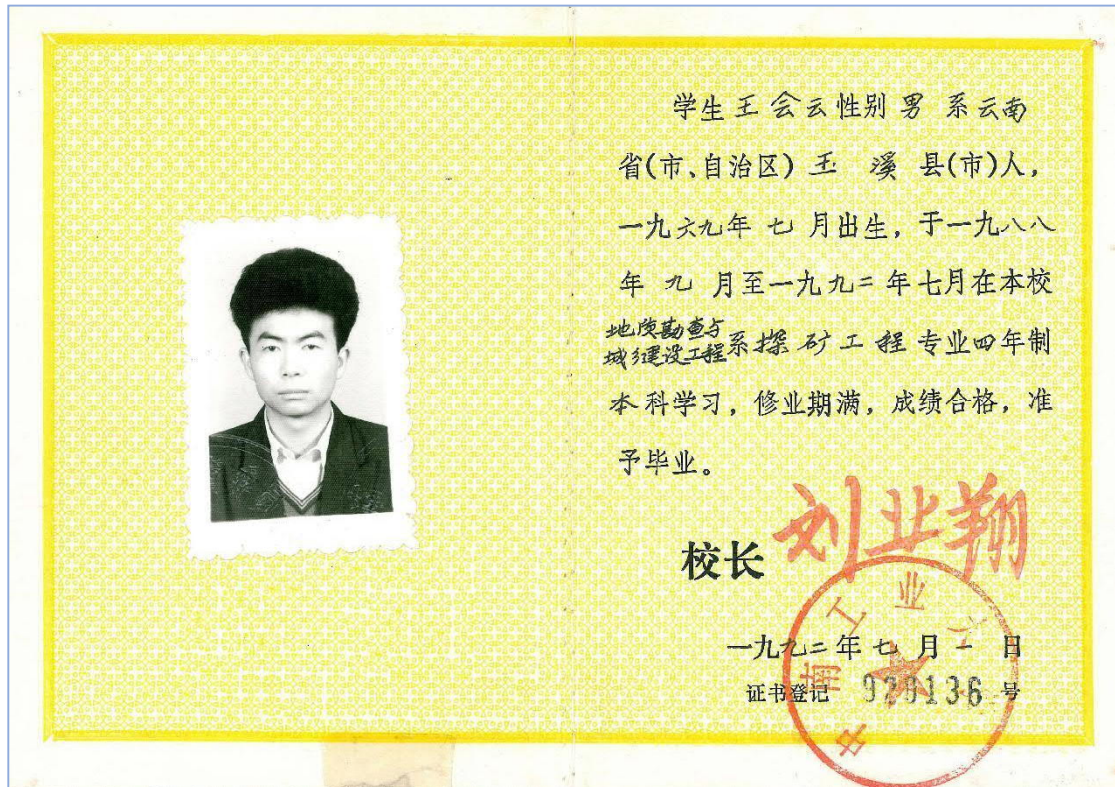 学生王会云性别男系云南
省(市、自治区)玉溪县(市)人,
一九六九年七月出生,于一九八八
年九月至一九九二年七月在本校
地质勘查与
城乡建设工程系探矿工程专业四年制
本科学习,修业期满,成绩合格,准
予毕业。
校长 刘业翔
中南工业大
一九九二年七月一日
证书登记 920136 号